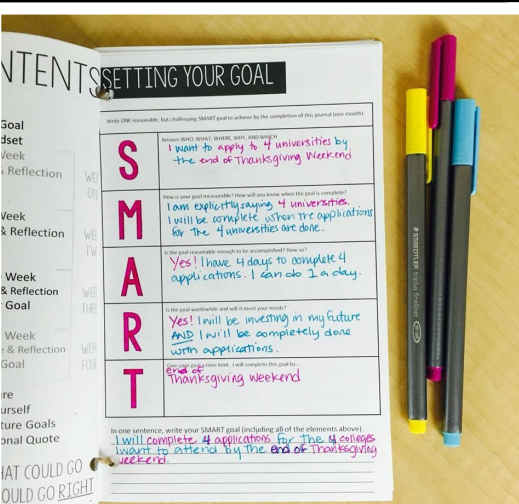 NTENTS
Goal
dset
Week
& Reflection
WEE
ON
Week
& Reflection
WEE
TW
Week
& Reflection
Goal
WEE
THRE
Week
e & Reflection
Goal
WEE
FOU
re
urself
ture Goals
onal Quote
HAT COULD GO
OULD GO RIGHT
SETTING YOUR GOAL
Write ONE reasonable, but challenging SMART goal to achieve by the completion of this journal (one month).
S
Answer WHO, WHAT, WHERE, WHY, AND WHICH
I want to apply to 4 universities by
the end of Thanksgiving Weekend
M
How is your goal measurable? How will you know when the goal is complete?
I am explicitly saying 4 universities.
I will be complete when the applications
for the 4 universities are done.
A
Is the goal reasonable enough to be accomplished? How so?
Yes! I have 4 days to complete 4
applications. I can do 1 a day.
R
Is the goal worthwhile and will it meet your needs?
Yes! I will be investing in my future
AND I will be completely done
with applications.
T
Give your goal a time limit. I will complete this goal by...
end of
Thanksgiving weekend
In one sentence, write your SMART goal (including all of the elements above).
I will complete 4 applications for the 4 colleges
I want to attend by the end of Thanksgiving
weekend.
STAEDTLER triplus fineliner